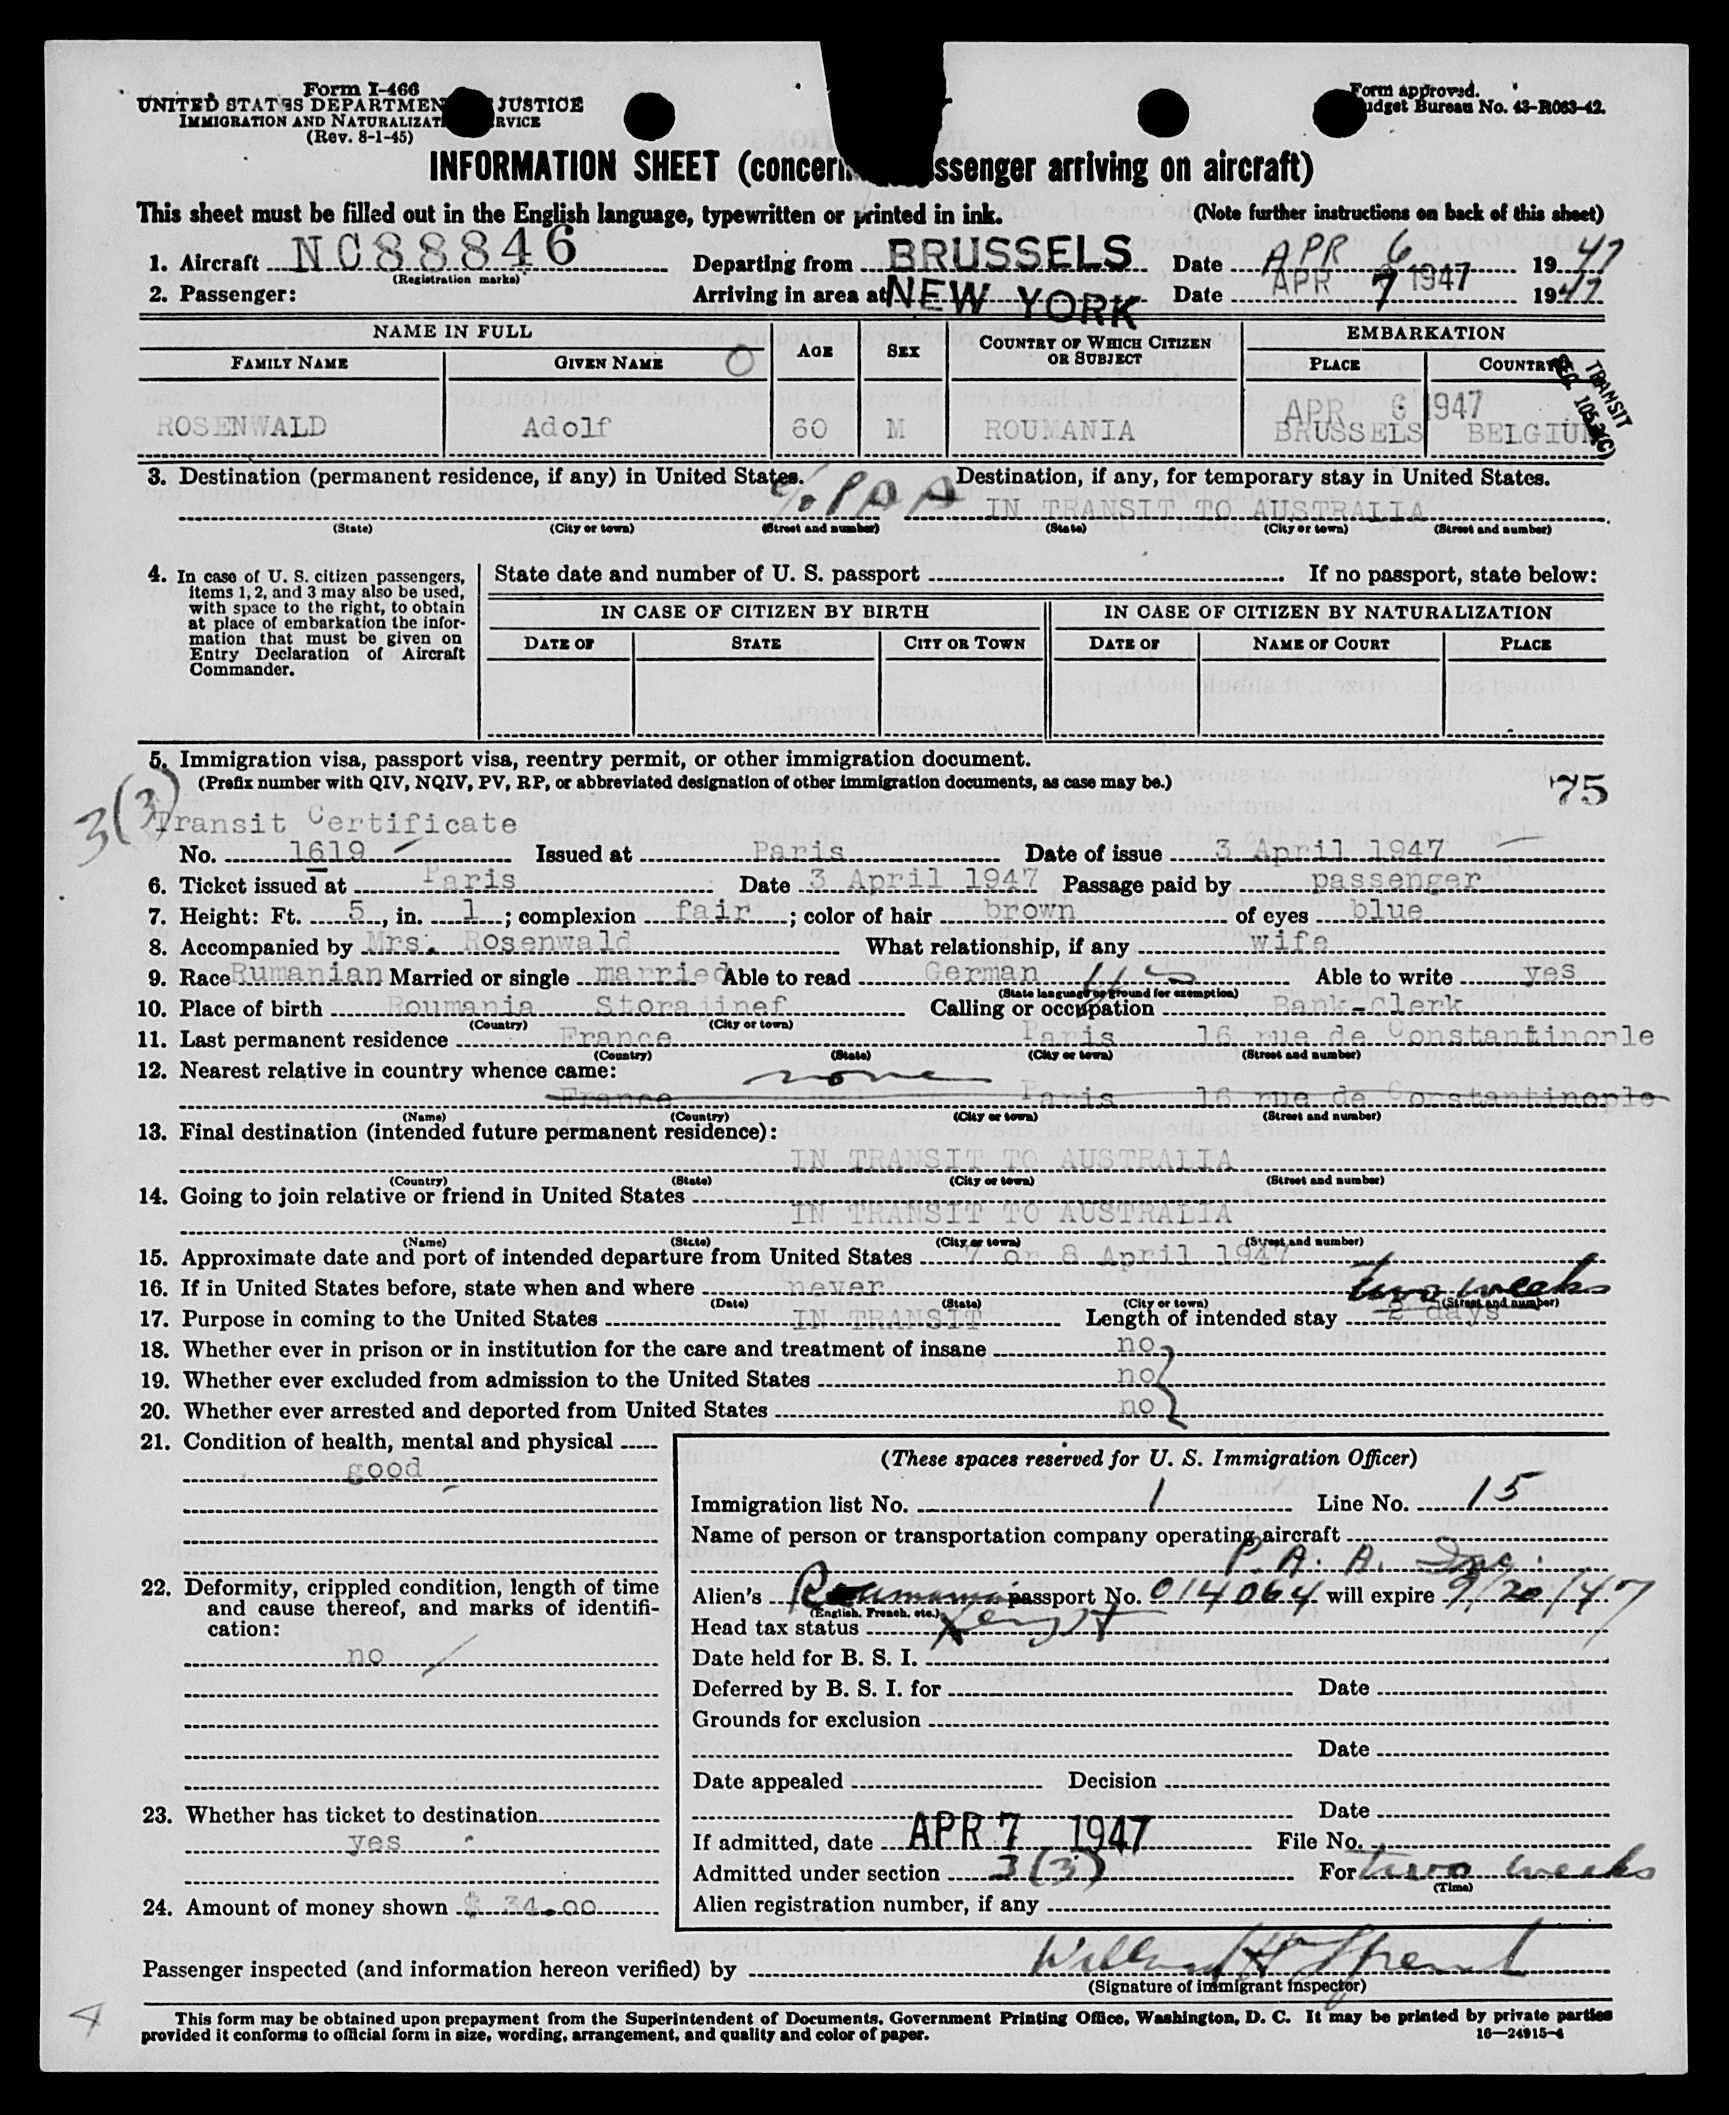 Form I-466
UNITED STATES DEPARTMEN JUSTICE
IMMIGRATION AND NATURALIZAT RVICE
(Rev. 8-1-45)
Form approved.
udget Bureau No. 43-R063-42.
INFORMATION SHEET (concern ssenger arriving on aircraft)
This sheet must be filled out in the English language, typewritten or printed in ink. (Note further instructions on back of this sheet)
1. Aircraft NC88846 Departing from BRUSSELS Date APR 6 1947
(Registration marks)
2. Passenger: Arriving in area at NEW YORK Date APR 7 1947 1947
NAME IN FULL AGE SEX COUNTRY OF WHICH CITIZEN OR SUBJECT EMBARKATION
FAMILY NAME GIVEN NAME O PLACE COUNTRY
TRANSIT
105.3(C)
APR 6 1947
ROSENWALD Adolf 60 M ROUMANIA BRUSSELS BELGIUM
3. Destination (permanent residence, if any) in United States. Destination, if any, for temporary stay in United States.
c/o PAA IN TRANSIT TO AUSTRALIA
(State) (City or town) (Street and number) (State) (City or town) (Street and number)
4. In case of U. S. citizen passengers, items 1, 2, and 3 may also be used, with space to the right, to obtain at place of embarkation the information that must be given on Entry Declaration of Aircraft Commander.
State date and number of U. S. passport If no passport, state below:
IN CASE OF CITIZEN BY BIRTH IN CASE OF CITIZEN BY NATURALIZATION
DATE OF STATE CITY OR TOWN DATE OF NAME OF COURT PLACE
5. Immigration visa, passport visa, reentry permit, or other immigration document.
(Prefix number with QIV, NQIV, PV, RP, or abbreviated designation of other immigration documents, as case may be.) 75
3(3)
Transit Certificate
No. 1619 Issued at Paris Date of issue 3 April 1947
6. Ticket issued at Paris Date 3 April 1947 Passage paid by passenger
7. Height: Ft. 5, in. 1; complexion fair; color of hair brown of eyes blue
8. Accompanied by Mrs. Rosenwald What relationship, if any wife
9. Race Rumanian Married or single married Able to read German yes Able to write yes
(State language or ground for exemption)
10. Place of birth Roumania Storajinef Calling or occupation Bank-clerk
(Country) (City or town)
11. Last permanent residence France Paris 16 rue de Constantinople
(Country) (State) (City or town) (Street and number)
12. Nearest relative in country whence came: none
France Paris 16 rue de Constantinople
(Name) (Country) (City or town) (Street and number)
13. Final destination (intended future permanent residence):
IN TRANSIT TO AUSTRALIA
(Country) (State) (City or town) (Street and number)
14. Going to join relative or friend in United States
IN TRANSIT TO AUSTRALIA
(Name) (State) (City or town) (Street and number)
15. Approximate date and port of intended departure from United States 7 or 8 April 1947
16. If in United States before, state when and where never two weeks
(Date) (State) (City or town) (Street and number)
17. Purpose in coming to the United States IN TRANSIT Length of intended stay 2 days
18. Whether ever in prison or in institution for the care and treatment of insane no
19. Whether ever excluded from admission to the United States no
20. Whether ever arrested and deported from United States no
21. Condition of health, mental and physical
good
22. Deformity, crippled condition, length of time and cause thereof, and marks of identification:
no
23. Whether has ticket to destination
yes
24. Amount of money shown $ 34.00
(These spaces reserved for U. S. Immigration Officer)
Immigration list No. 1 Line No. 15
Name of person or transportation company operating aircraft
P. A. A. Inc.
Alien's Roumania passport No. 014064 will expire 9/20/47
(English, French, etc.)
Head tax status Exempt
Date held for B. S. I.
Deferred by B. S. I. for Date
Grounds for exclusion
Date
Date appealed Decision
Date
If admitted, date APR 7 1947 File No.
Admitted under section 3(3) For two weeks
(Time)
Alien registration number, if any
Passenger inspected (and information hereon verified) by
(Signature of immigrant inspector)
4
This form may be obtained upon prepayment from the Superintendent of Documents, Government Printing Office, Washington, D. C. It may be printed by private parties
provided it conforms to official form in size, wording, arrangement, and quality and color of paper. 16—24915-4